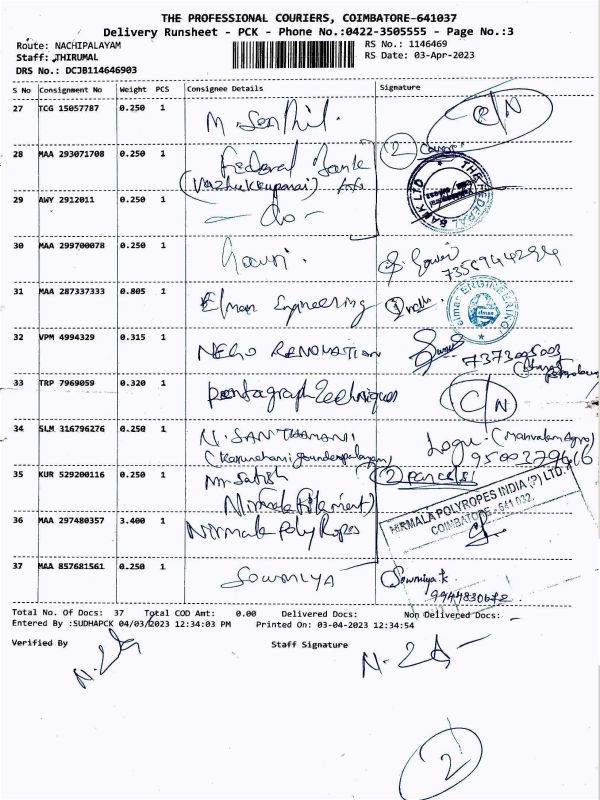 THE PROFESSIONAL COURIERS, COIMBATORE-641037
Delivery Runsheet - PCK - Phone No.:0422-3505555 - Page No.:3
Route: NACHIPALAYAM RS No.: 1146469
Staff: THIRUMAL RS Date: 03-Apr-2023
DRS No.: DCJB114646903
S No Consignment No Weight PCS Consignee Details Signature
27 TCG 15057787 0.250 1 M. Senthil. C/N
28 MAA 293071708 0.250 1 Federal Bank (2) Covers
(Vazhukkuparai)
THE FEDERAL BANK LTD
29 AWY 2912011 0.250 1 - do -
30 MAA 299700078 0.250 1 Gowri. Gowri
7358944294
31 MAA 287337333 0.805 1 Elmar Engineering
elmar ENGINEERING
elmar
32 VPM 4994329 0.315 1 NERO RENOVATION
7373095003
33 TRP 7969059 0.320 1 pentagraph Techniques C/N
34 SLM 316796276 0.250 1 N. SANTHAMANI Logu.
9500279616
35 KUR 529200116 0.250 1 Mr Satish (2) parcels
Nirmala Filament)
36 MAA 297480357 3.400 1 Nirmala Poly Ropes
NIRMALA POLYROPES INDIA (P) LTD.
COIMBATORE - 641 032.
37 MAA 857681561 0.250 1 SOWMIYA Sowmiya.k
9944830672
Total No. Of Docs: 37 Total COD Amt: 0.00 Delivered Docs: Non Delivered Docs:
Entered By :SUDHAPCK 04/03/2023 12:34:03 PM Printed On: 03-04-2023 12:34:54
Verified By Staff Signature
2